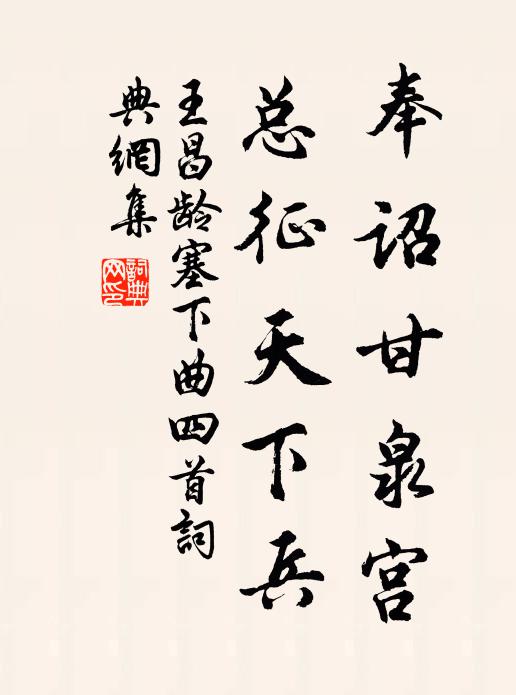 奉诏甘泉宫
总征天下兵
王昌龄塞下曲四首詞
典網集
詞典网印